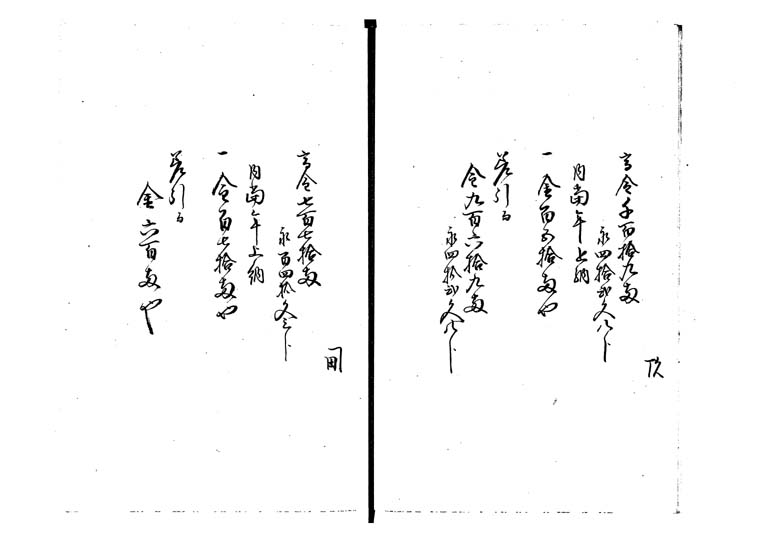 高金千百拾九両
永四拾弐文八分
内当年上納
一金百五拾両也
差引而
金九百六拾九両
永四拾弐文八分
高金七百七拾両
永百四拾
内当年上納
一金百七拾両也
差引而
金六百両也